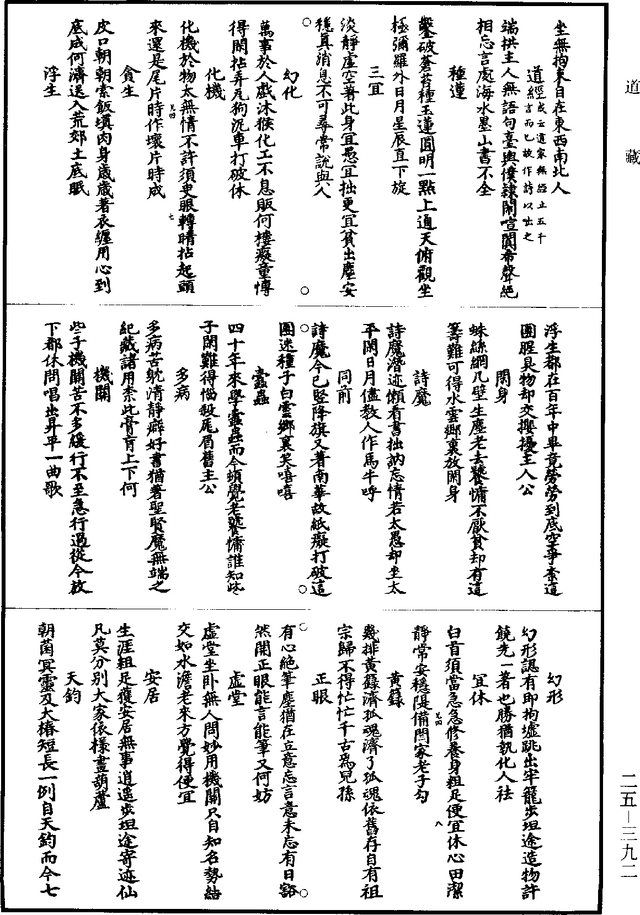 道藏
坐無拘束自在東西南北人
道經或云道家無經止五千言而已故作詩以出之
端拱主人無語句臺輿僕隷鬧喧闐希聲絕
相忘言處海水墨山書不全
種蓮
鑿破蒼苔種玉蓮圓明一點上通天俯觀坐
極彌羅外日月星辰直下旋
三宜
淡靜虛空著此身宜愚宜拙更宜貧出塵安
穩真消息不可尋常說與人
幻化
萬事於人戲沐猴化工不息販何樓癡童慱
得閑拈弄瓦狗泥車打破休
化機
化機於物太無情不許須臾眼轉睛拈起頭
來還是尾片時作壞片時成
貪生
皮口朝朝索飯嗔肉身歲歲著衣纏用心到
底成何濟送入荒郊土底眠
浮生
浮生都在百年中畢竟勞勞到底空爭柰這
團腥臭物却交攖擾主人公
閑身
蛛絲網几壁生塵老去饕慵不厭貧却有這
籌難可得水雲鄉裏放閑身
詩魔
詩魔潛迹懶看書拙訥忘情若太愚却坐太
平閑日月儘教人作馬牛呼
同前
詩魔今已竪降旗又著南華故紙癡打破這
團迷種子白雲鄉裏笑嘻嘻
蠹蟲
四十年來學蠹蟲而今頭覺老饕慵誰知
子閑難得惱殺尾眉舊主公
多病
多病苦躭清靜癖好書猶著聖賢魔無端之
紀藏諸用柰此膏肓上下何
機關
些子機關苦不多緩行不至急行過從今放
下都休問唱出昇平一曲歌
幻形
幻形認有即拘墟跳出牢籠步坦途造物許
饒先一著也勝猶執化人袪
宜休
白首須當急急修養身粗足便宜休心田潔
靜常安穩隄備閻家老子勾
黃籙
幾排黃籙濟孤魂濟了孤魂依舊存自有祖
宗歸不得忙忙千古為兒孫
正眼
有心絕筆塵猶在立意忘言意未忘有日豁
然開正眼能言能筆又何妨
虛堂
虛堂坐卧無人問妙用機關只自知名勢結
交如水澹老來方覺得便宜
安居
生涯粗足穫安居無事逍遙步坦途寄迹仙
凡莫分別大家依樣畫葫蘆
天鈞
朝菌冥靈及大椿短長一例自天鈞而今七
二五－三九二